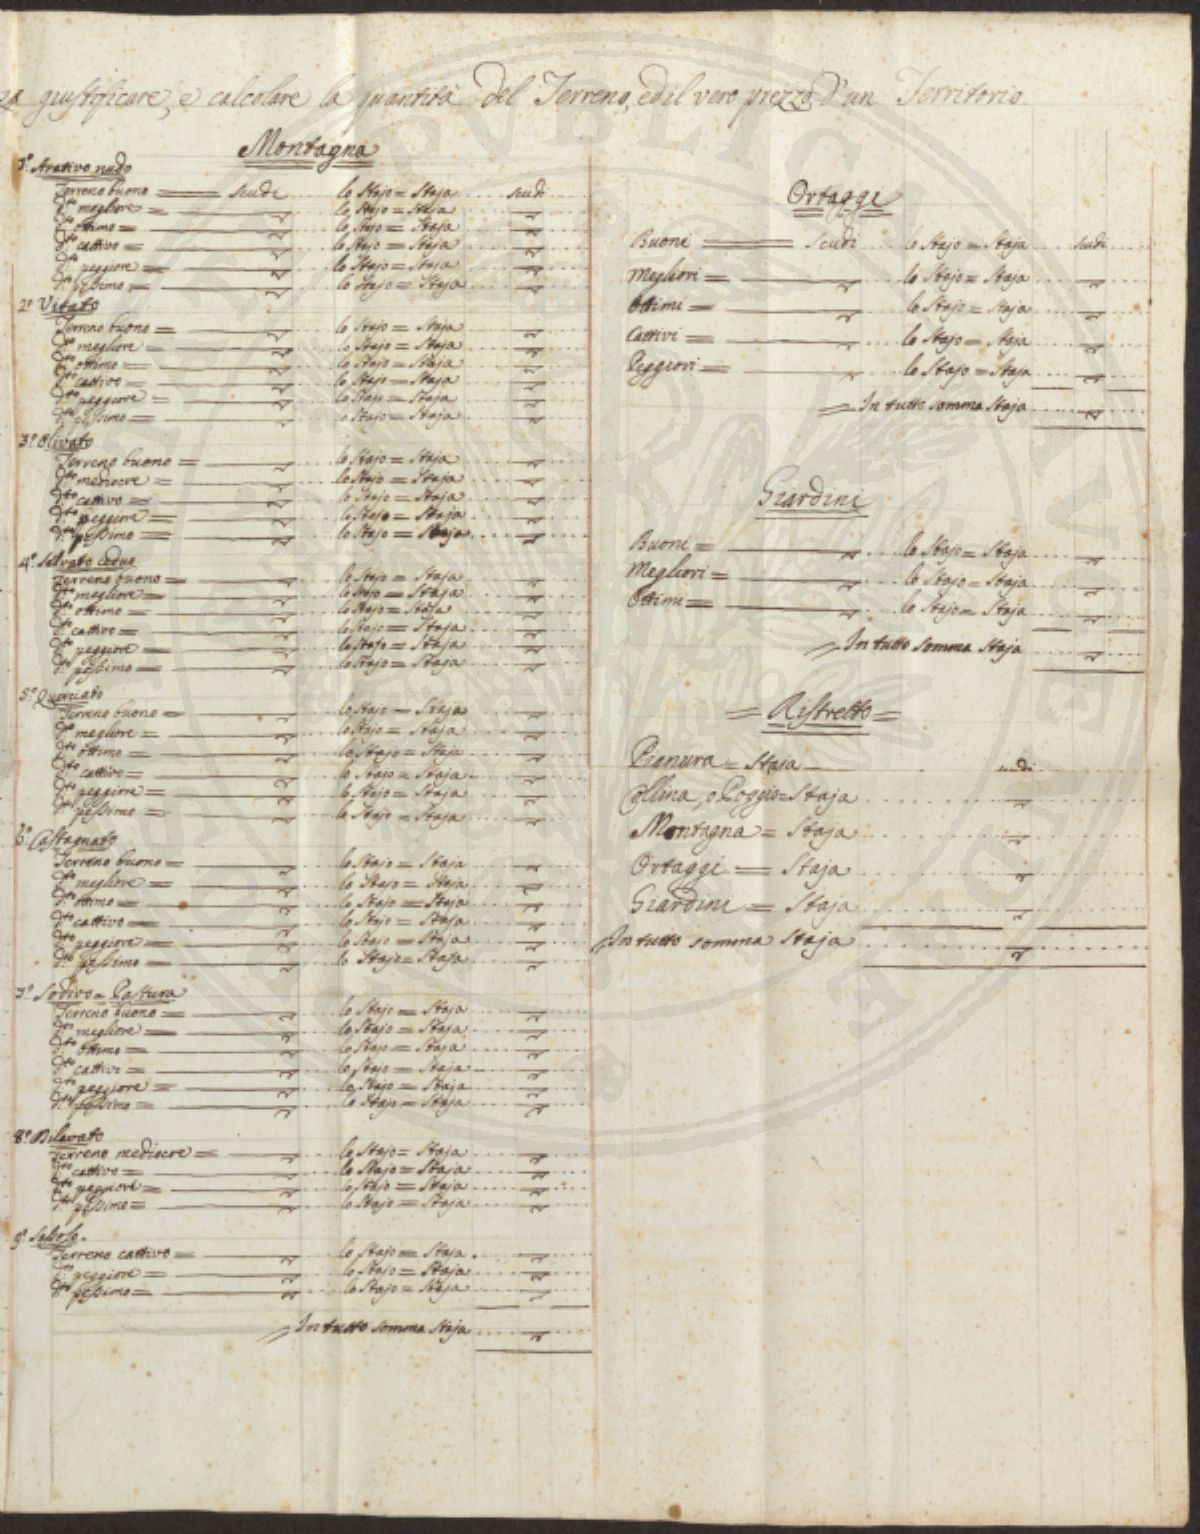 giustificare, e calcolare la quantità del Terreno, ed il vero prezzo d'un Territorio.
Montagna
1.° Arativo nudo
Terreno buono = scudi lo Stajo = Staja scudi
d.to megliore = lo Stajo = Staja
d.to ottimo = lo Stajo = Staja
d.to cattivo = lo Stajo = Staja
d.to peggiore = lo Stajo = Staja
d.to pessimo = lo Stajo = Staja
2.° Vitato
Terreno buono = lo Stajo = Staja
d.to megliore = lo Stajo = Staja
d.to ottimo = lo Stajo = Staja
d.to cattivo = lo Stajo = Staja
d.to peggiore = lo Stajo = Staja
d.to pessimo = lo Stajo = Staja
3.° Olivato
Terreno buono = lo Stajo = Staja
d.to mediocre = lo Stajo = Staja
d.to cattivo = lo Stajo = Staja
d.to peggiore = lo Stajo = Staja
d.to pessimo = lo Stajo = Staja
4.° Selvato ceduo
Terreno buono = lo Stajo = Staja
d.to megliore = lo Stajo = Staja
d.to ottimo = lo Stajo = Staja
d.to cattivo = lo Stajo = Staja
d.to peggiore = lo Stajo = Staja
d.to pessimo = lo Stajo = Staja
5.° Querciato
Terreno buono = lo Stajo = Staja
d.to megliore = lo Stajo = Staja
d.to ottimo = lo Stajo = Staja
d.to cattivo = lo Stajo = Staja
d.to peggiore = lo Stajo = Staja
d.to pessimo = lo Stajo = Staja
6.° Castagnato
Terreno buono = lo Stajo = Staja
d.to megliore = lo Stajo = Staja
d.to ottimo = lo Stajo = Staja
d.to cattivo = lo Stajo = Staja
d.to peggiore = lo Stajo = Staja
d.to pessimo = lo Stajo = Staja
7.° Sodivo = Pastura
Terreno buono = lo Stajo = Staja
d.to megliore = lo Stajo = Staja
d.to ottimo = lo Stajo = Staja
d.to cattivo = lo Stajo = Staja
d.to peggiore = lo Stajo = Staja
d.to pessimo = lo Stajo = Staja
8.° Dilavato
Terreno mediocre = lo Stajo = Staja
d.to cattivo = lo Stajo = Staja
d.to peggiore = lo Stajo = Staja
d.to pessimo = lo Stajo = Staja
9.°
Terreno cattivo = lo Stajo = Staja
d.to peggiore = lo Stajo = Staja
d.to pessimo = lo Stajo = Staja
= In tutto somma Staja
Ortaggi
Buoni = scudi lo Stajo = Staja scudi
Megliori = lo Stajo = Staja
Ottimi = lo Stajo = Staja
Cattivi = lo Stajo = Staja
Peggiori = lo Stajo = Staja
= In tutto somma Staja
Giardini
Buoni = lo Stajo = Staja
Megliori = lo Stajo = Staja
Ottimi = lo Stajo = Staja
= In tutto somma Staja
= Ristretto =
Pianura = Staja scudi
Collina, o Poggio = Staja
Montagna = Staja
Ortaggi = Staja
Giardini = Staja
In tutto somma Staja